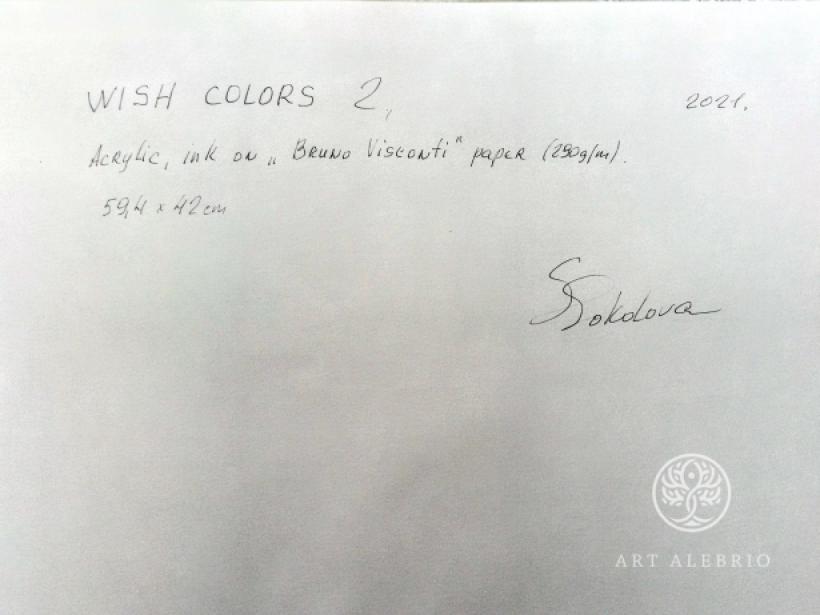 WISH COLORS 2, 2021.
Acrylic, ink on „Bruno Visconti" paper (290g/m).
59,4 x 42 cm
Sokolova
ART ALEBRIO